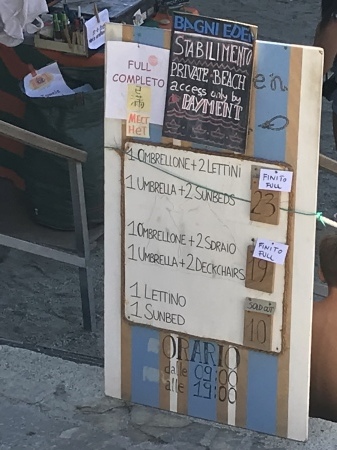 BAGNI EDEN
STABILIMENTO
PRIVATE BEACH
access only by
PAYMENT
FULL
COMPLETO
1 OMBRELLONE + 2 LETTINI
1 UMBRELLA + 2 SUNBEDS
FINITO
FULL
23
1 OMBRELLONE + 2 SDRAIO
1 UMBRELLA + 2 DECKCHAIRS
FINITO
FULL
19
1 LETTINO
1 SUNBED
SOLD OUT
10
ORARIO
dalle 09:00
alle 19:00